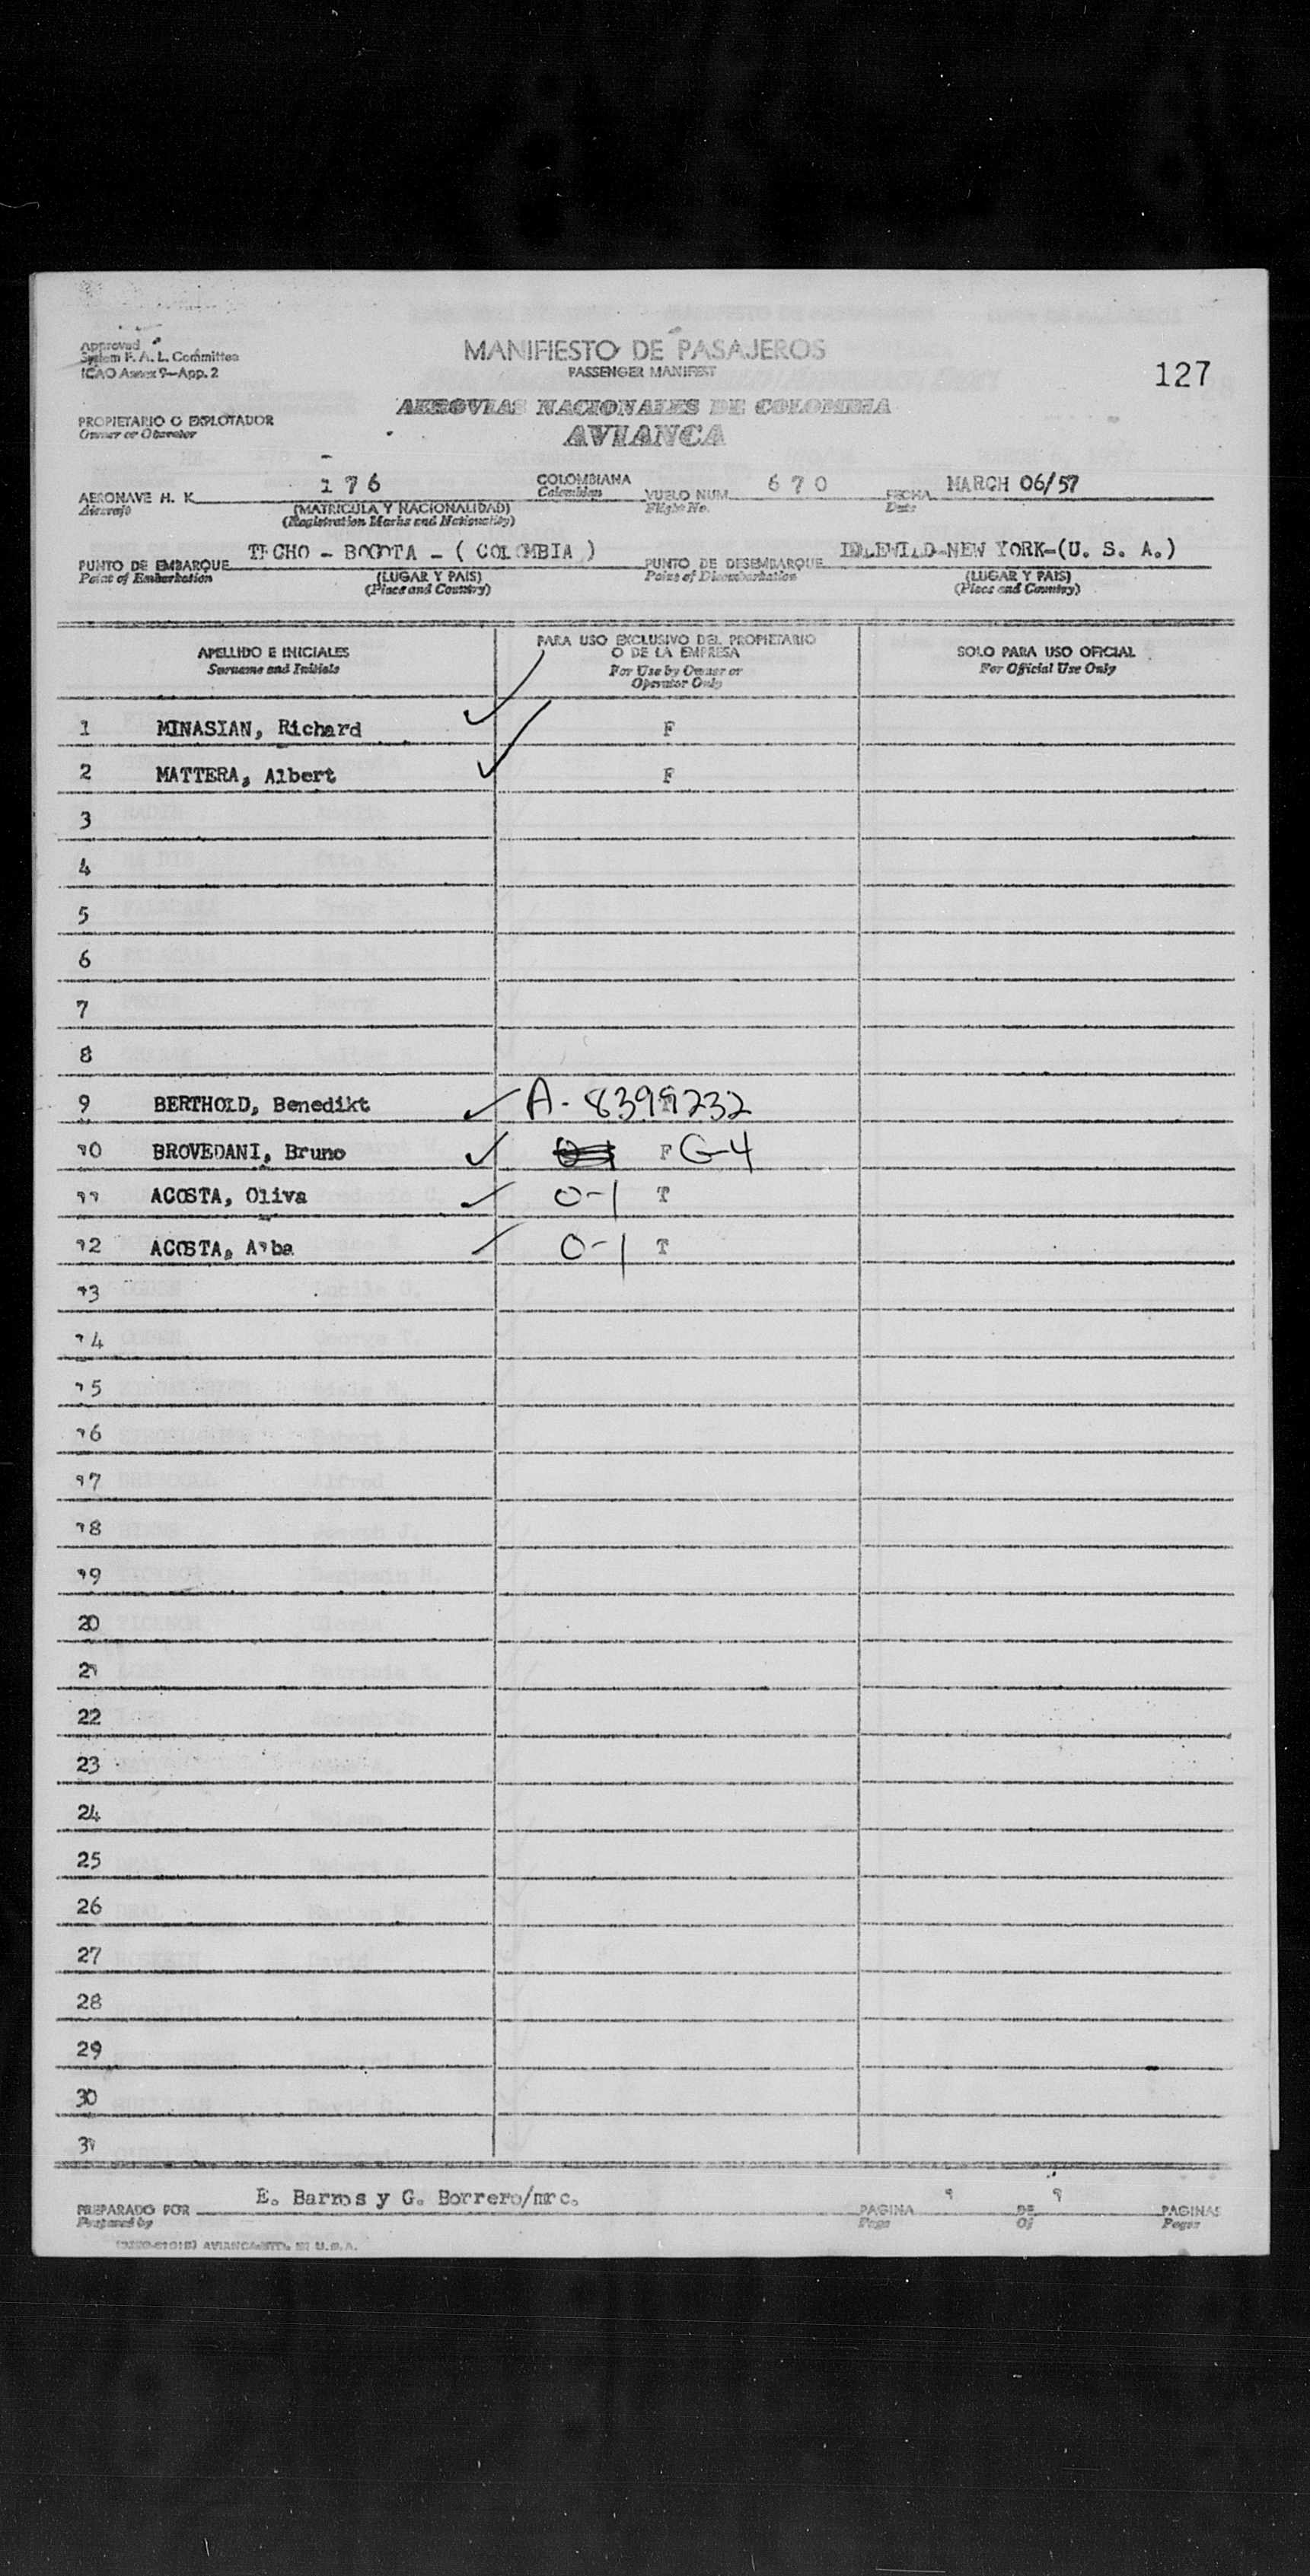 Approved
System F. A. L. Committee
ICAO Annex 9—App. 2
MANIFIESTO DE PASAJEROS
PASSENGER MANIFEST
127
AEROVIAS NACIONALES DE COLOMBIA
AVIANCA
PROPIETARIO O EXPLOTADOR
Owner or Operator
AERONAVE H. K. 176 COLOMBIANA VUELO NUM. 670 FECHA MARCH 06/57
Aircraft (MATRICULA Y NACIONALIDAD) Colombian Flight No. Date
(Registration Marks and Nationality)
PUNTO DE EMBARQUE TECHO - BOGOTA - ( COLOMBIA ) PUNTO DE DESEMBARQUE IDLEWILD-NEW YORK-(U. S. A.)
Point of Embarkation (LUGAR Y PAIS) Point of Disembarkation (LUGAR Y PAIS)
(Place and Country) (Place and Country)
APELLIDO E INICIALES
Surname and Initials
PARA USO EXCLUSIVO DEL PROPIETARIO
O DE LA EMPRESA
For Use by Owner or
Operator Only
SOLO PARA USO OFICIAL
For Official Use Only
1 MINASIAN, Richard F
2 MATTERA, Albert F
3
4
5
6
7
8
9 BERTHOLD, Benedikt A-8399232
10 BROVEDANI, Bruno F G-4
11 ACOSTA, Oliva O-1 T
12 ACOSTA, Alba O-1 T
13
14
15
16
17
18
19
20
21
22
23
24
25
26
27
28
29
30
31
PREPARADO POR E. Barros y G. Borrero/mrc. PAGINA 1 DE 1 PAGINAS
Prepared by Page Of Pages
AVIANCA-STD. IN U.S.A.